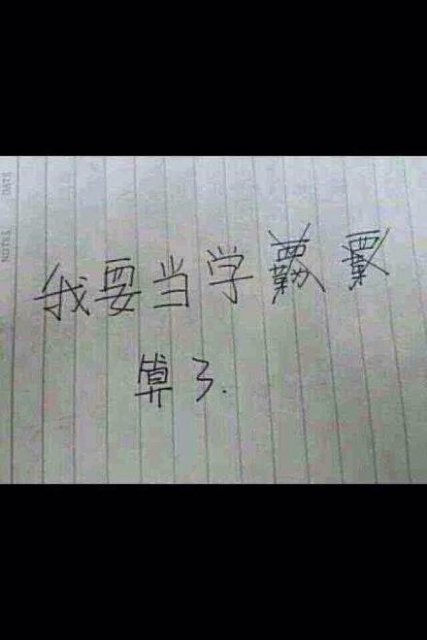 NOTES DATE
我要当学
算了.